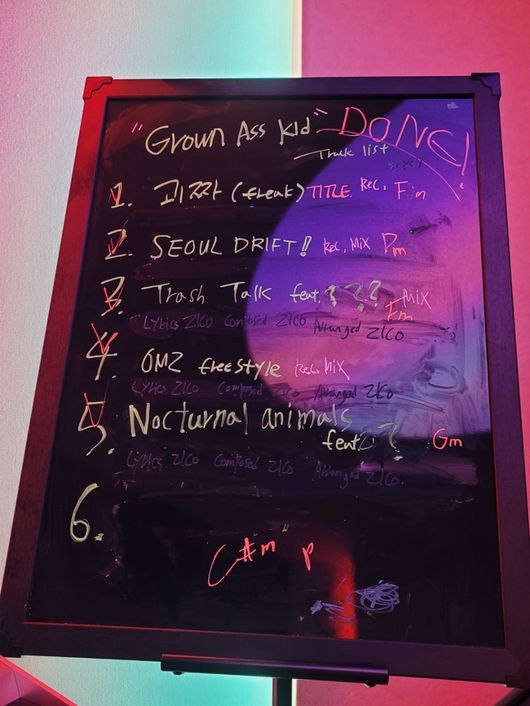 "Grown Ass Kid" DONE!
Track list
1. 괴짜 (freak) TITLE Rec, F#m
2. SEOUL DRIFT! Rec, Mix Dm
3. Trash Talk feat. ? ? ? Mix
Fm
Lyrics ZICO Composed ZICO Arranged ZICO
4. OMZ freestyle Rec, Mix
Lyrics ZICO Composed ZICO Arranged ZICO
5. Nocturnal animals
feat. ? Gm
Lyrics ZICO Composed ZICO Arranged ZICO.
6.
C#m p